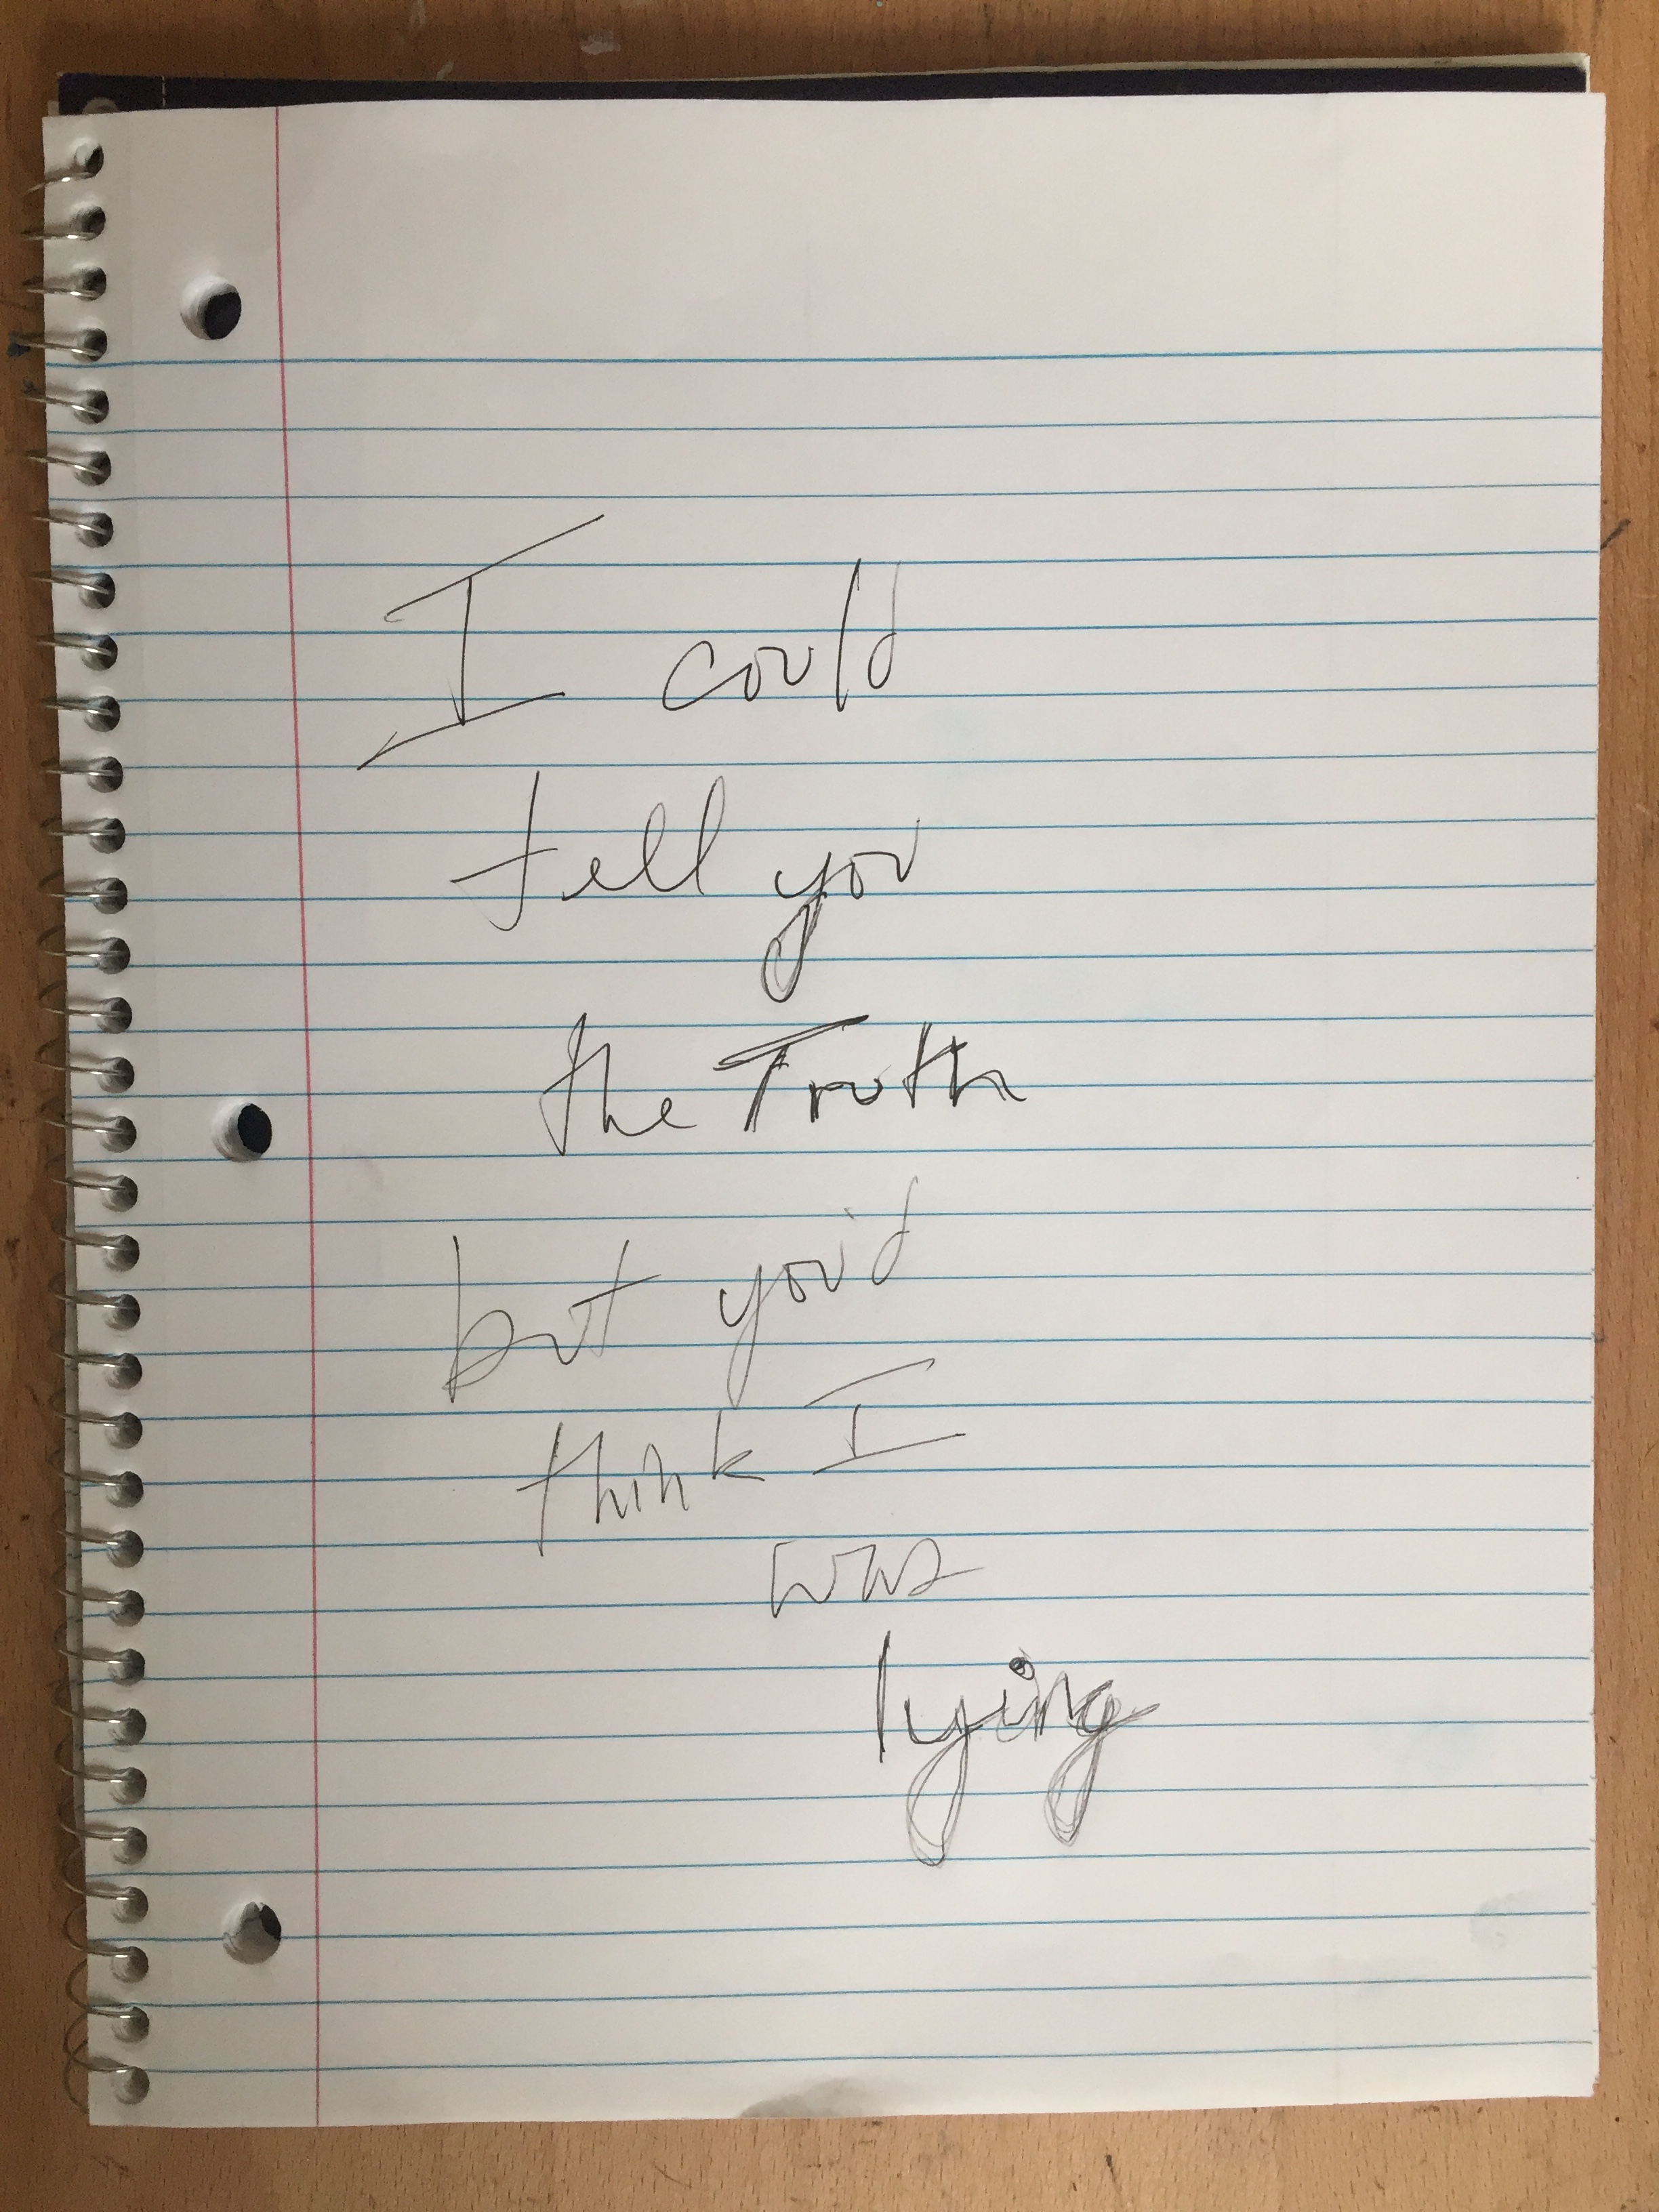 I could
tell you
the Truth
but you'd
think I
was
lying